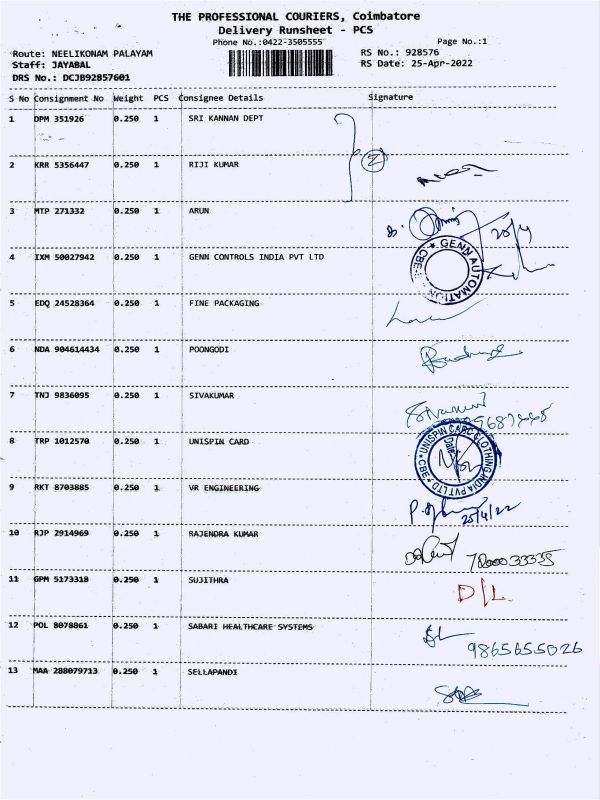 THE PROFESSIONAL COURIERS, Coimbatore
Delivery Runsheet - PCS
Phone No.:0422-3505555 Page No.:1
Route: NEELIKONAM PALAYAM RS No.: 928576
Staff: JAYABAL RS Date: 25-Apr-2022
DRS No.: DCJB92857601
S No Consignment No Weight PCS Consignee Details Signature
1 DPM 351926 0.250 1 SRI KANNAN DEPT
2 KRR 5356447 0.250 1 RIJI KUMAR
2
3 MTP 271332 0.250 1 ARUN
4 IXM 50027942 0.250 1 GENN CONTROLS INDIA PVT LTD
GENN AUTOMATION
CBE
5 EDQ 24528364 0.250 1 FINE PACKAGING
6 NDA 904614434 0.250 1 POONGODI
7 TNJ 9836095 0.250 1 SIVAKUMAR
Sivakumar
8 TRP 1012570 0.250 1 UNISPIN CARD
UNISPIN CARD CLOTHING INDIA PVT LTD
CBE
Date
9 RKT 8703885 0.250 1 VR ENGINEERING
25/4/22
10 RJP 2914969 0.250 1 RAJENDRA KUMAR
11 GPM 5173318 0.250 1 SUJITHRA
D/L
12 POL 8078861 0.250 1 SABARI HEALTHCARE SYSTEMS
9865655026
13 MAA 288079713 0.250 1 SELLAPANDI